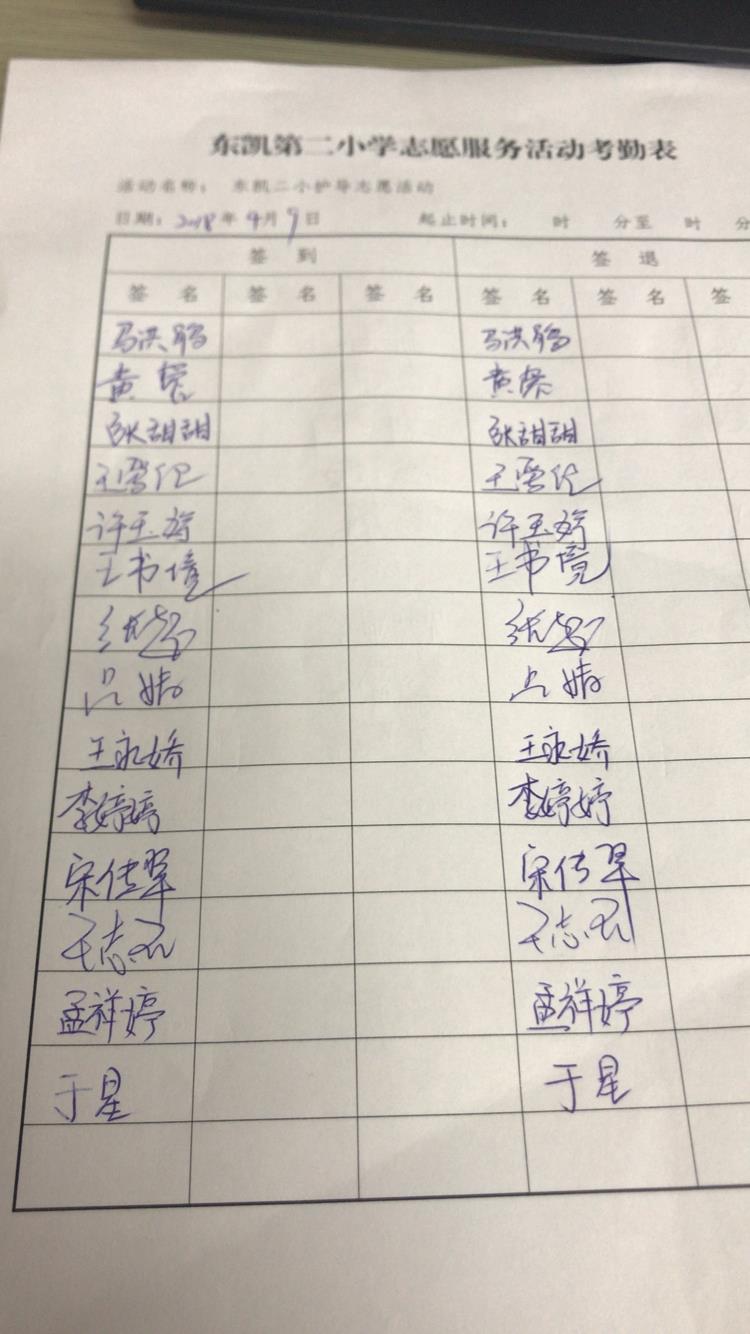 东凯第二小学志愿服务活动考勤表
活动名称: 东凯二小护导志愿活动
日期: 2018年9月9日 起止时间: 时 分至 时 分
签 到 签 退
签 名 签 名 签 名 签 名 签 名 签
马洪 马洪
黄 黄
张甜甜 张甜甜
王 王
许玉婷 许玉婷
王书境 王书境
张 张
吕婧 吕婧
王永娇 王永娇
李婷婷 李婷婷
宋传翠 宋传翠
王志 王志
孟祥婷 孟祥婷
于星 于星